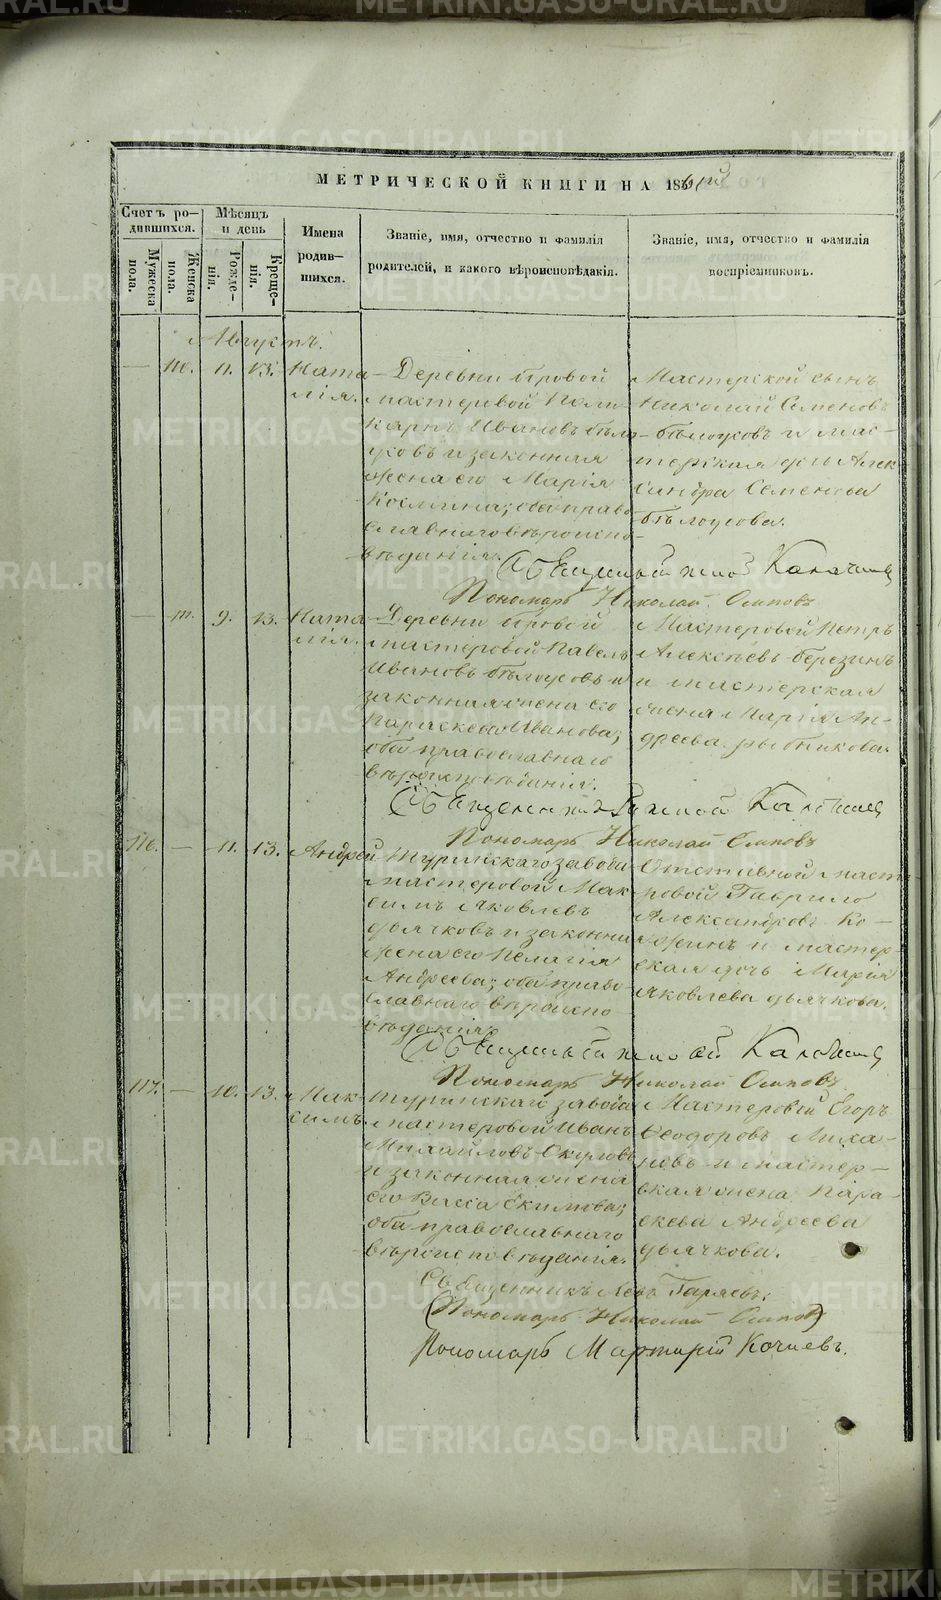 METRIKI.GASO-URAL.RU
МЕТРИЧЕСКОЙ КНИГИ НА 186
Счетъ ро-
дившихся.
Мужеска
пола.
Женска
пола.
Мѣсяцъ
и день
Рожде-
нія.
Креще-
нія.
Имена
родив-
шихся.
Званіе, имя, отчество и фамилія
родителей, и какого вѣроисповѣданія.
Званіе, имя, отчество и фамилія
воспріемниковъ.
Августъ.
— 110. 11. 13. Ната
лія.
Деревни
мастеровой Поли
карпъ Ивановъ Бѣло
усовъ и законная
жена его Марія
Косьмина; оба право
славнаго вѣроиспо-
вѣданія.
Мастерской сынъ
Николай Семеновъ
Бѣлоусовъ и мас-
терская дочь Алек
сандра Семенова
Бѣлоусова.
Пономарь Николай Осиповъ
— 111. 9. 13. Ната
лія.
Деревни
мастеровой Павелъ
Ивановъ Бѣлоусовъ и
законная жена его
Параскева Иванова;
оба православнаго
вѣроисповѣданія.
Мастеровой Петръ
Алексѣевъ Березинъ
и мастерская
жена Марія Ан-
дреева Рыбникова.
Пономарь Николай Осиповъ
116. — 11. 13. Андрей
Туринскаго завода
мастеровой Мак
симъ Яковлевъ
Дьячковъ и законная
жена его Пелагія
Андреева; оба право-
славнаго вѣроиспо-
вѣданія.
Отставной масте
ровой Гаврило
Александровъ Ко-
жинъ и мастер-
ская дочь Марія
Яковлева Дьячкова.
Пономарь Николай Осиповъ.
117. — 10. 13. Мак-
симъ.
Туринскаго завода
мастеровой Иванъ
Михайловъ
и законная жена
его Васса Екимова;
оба православнаго
вѣроисповѣданія.
Мастеровой Егоръ
Ѳеодоровъ Миха-
левъ и мастер-
ская жена Пара-
скева Андреева
Дьячкова.
Священникъ Левъ Гаряевъ.
Пономарь Николай Осиповъ
Пономарь Мартирій Кочневъ.